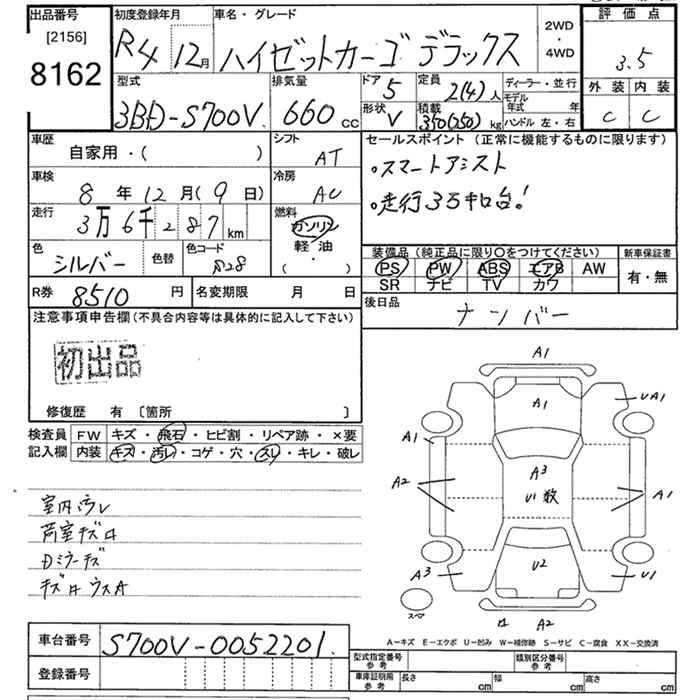 出品番号 初度登録年月 車名・グレード 2WD・4WD 評価点
[2156]
8162
R4 12月 ハイゼットカーゴ デラックス 3.5
型式 排気量 ドア 5 定員 2(4)人 ディーラー・並行 外装 内装
3BD-S700V 660cc 形状 V 積載 350(250)kg モデル年式 年 ハンドル 左・右 C C
車歴 シフト セールスポイント(正常に機能するものに限ります)
自家用・( ) AT 。スマートアシスト
車検 冷房
8年12月(9日) AC 。走行35キロ台!
走行 燃料
3万6千287km ガソリン
軽油
( ・ )
色 シルバー 色替 色コード S28
装備品(純正品に限り〇をつけてください) 新車保証書
PS PW ABS エアB AW 有・無
SR ナビ TV カワ
R券 8510円 名変期限 月 日 後日品
ナンバー
注意事項申告欄(不具合内容等は具体的に記入して下さい)
初出品
修復歴 有 [箇所 ]
検査員 FW キズ・飛石・ヒビ割・リペア跡・×要
記入欄 内装 キズ・汚レ・コゲ・穴・スレ・キレ・破レ
室内汚レ
荷室キズロ
Dミラーキズ
キズロウスA
A1
A1 UA1
A1
A2 A3 A1
U1数
A3 U2 U1
スペア
ロ A2
A-キズ E-エクボ U-凹み W-補修跡 S-サビ C-腐食 XX-交換済
車台番号 S700V-0052201
登録番号
型式指定番号 参考 類別区分番号 参考
車庫証明用 参考 長さ cm 幅 cm 高さ cm